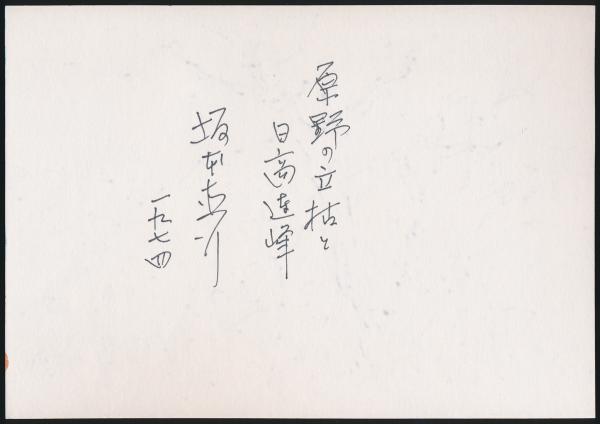 原野の立枯と
日高連峰
坂本直行
一九七四